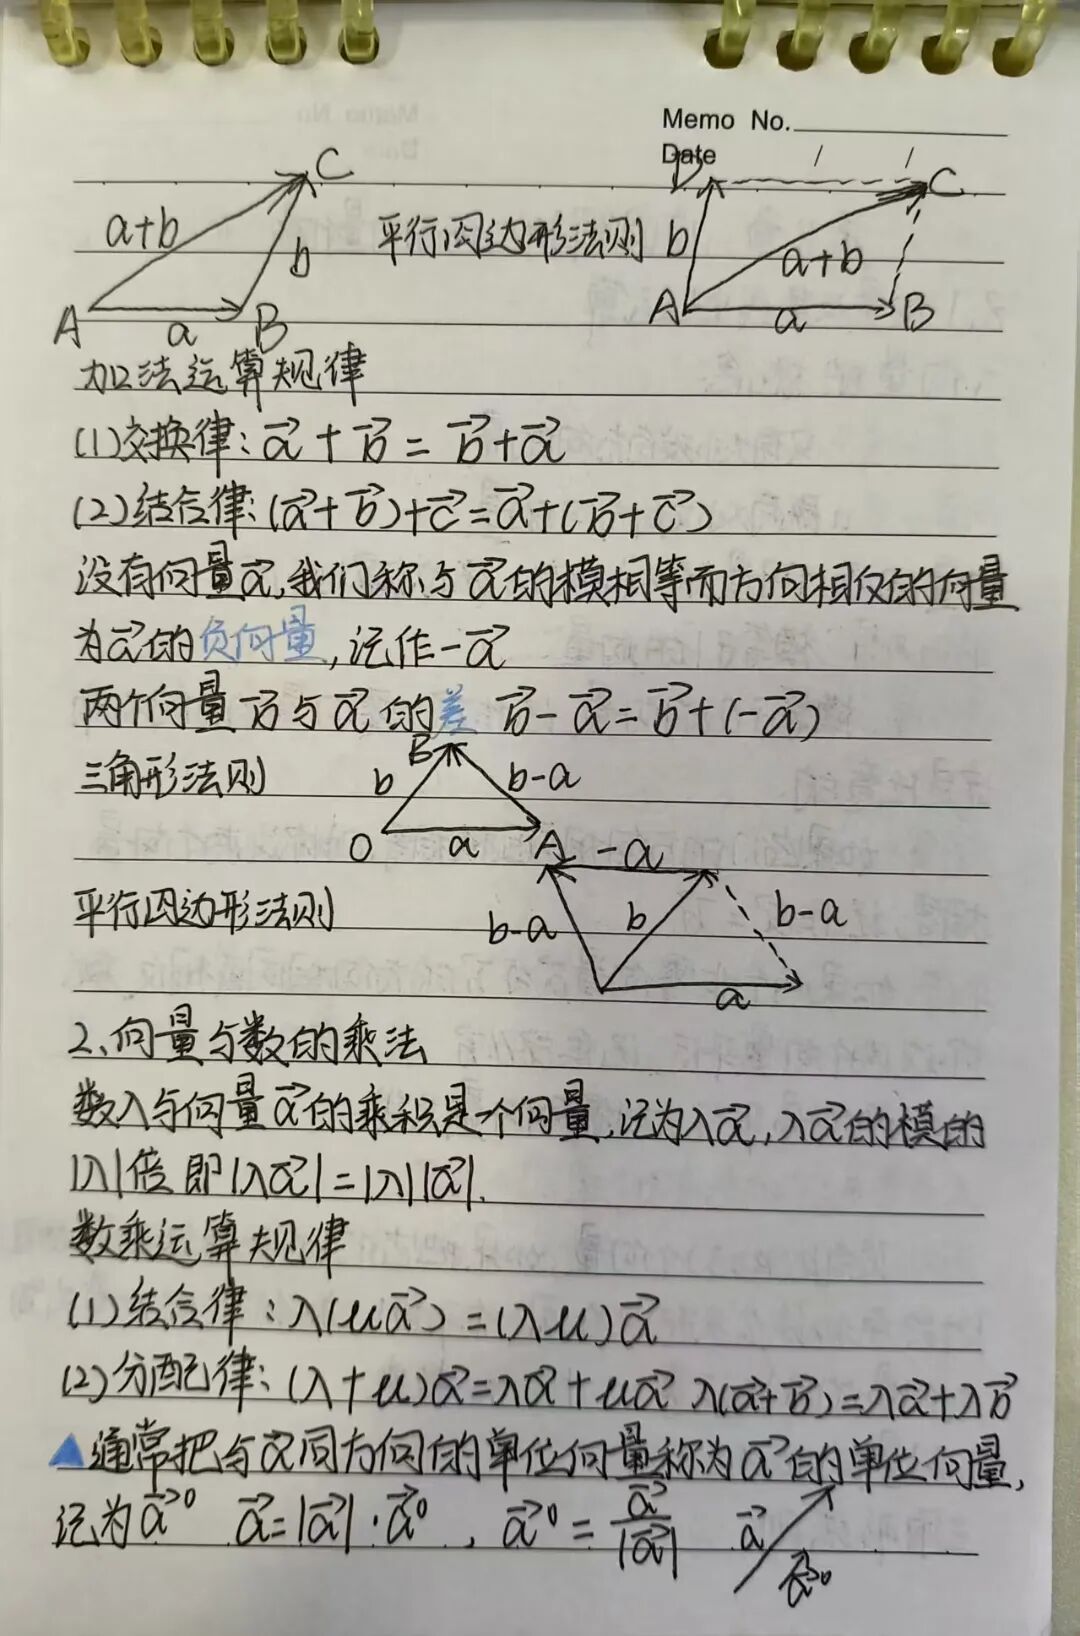 Memo No.
Date / /
C D C
a+b b 平行四边形法则 b a+b
A a B A a B
加法运算规律
(1)交换律:a⃗+b⃗=b⃗+a⃗
(2)结合律:(a⃗+b⃗)+c⃗=a⃗+(b⃗+c⃗)
没有向量a⃗,我们称与a⃗的模相等而方向相反的向量
为a⃗的负向量,记作-a⃗
两个向量b⃗与a⃗的差 b⃗-a⃗=b⃗+(-a⃗)
B
三角形法则 b b-a
O a A -a
平行四边形法则 b-a b b-a
a
2、向量与数的乘法
数λ与向量a⃗的乘积是一个向量,记为λa⃗,λa⃗的模的
|λ|倍即|λa⃗|=|λ||a⃗|.
数乘运算规律
(1)结合律:λ(μa⃗)=(λμ)a⃗
(2)分配律:(λ+μ)a⃗=λa⃗+μa⃗ λ(a⃗+b⃗)=λa⃗+λb⃗
通常把与a⃗同方向的单位向量称为a⃗的单位向量,
记为a⃗⁰ a⃗=|a⃗|·a⃗⁰, a⃗⁰=a⃗/|a⃗| a⃗ a⃗⁰